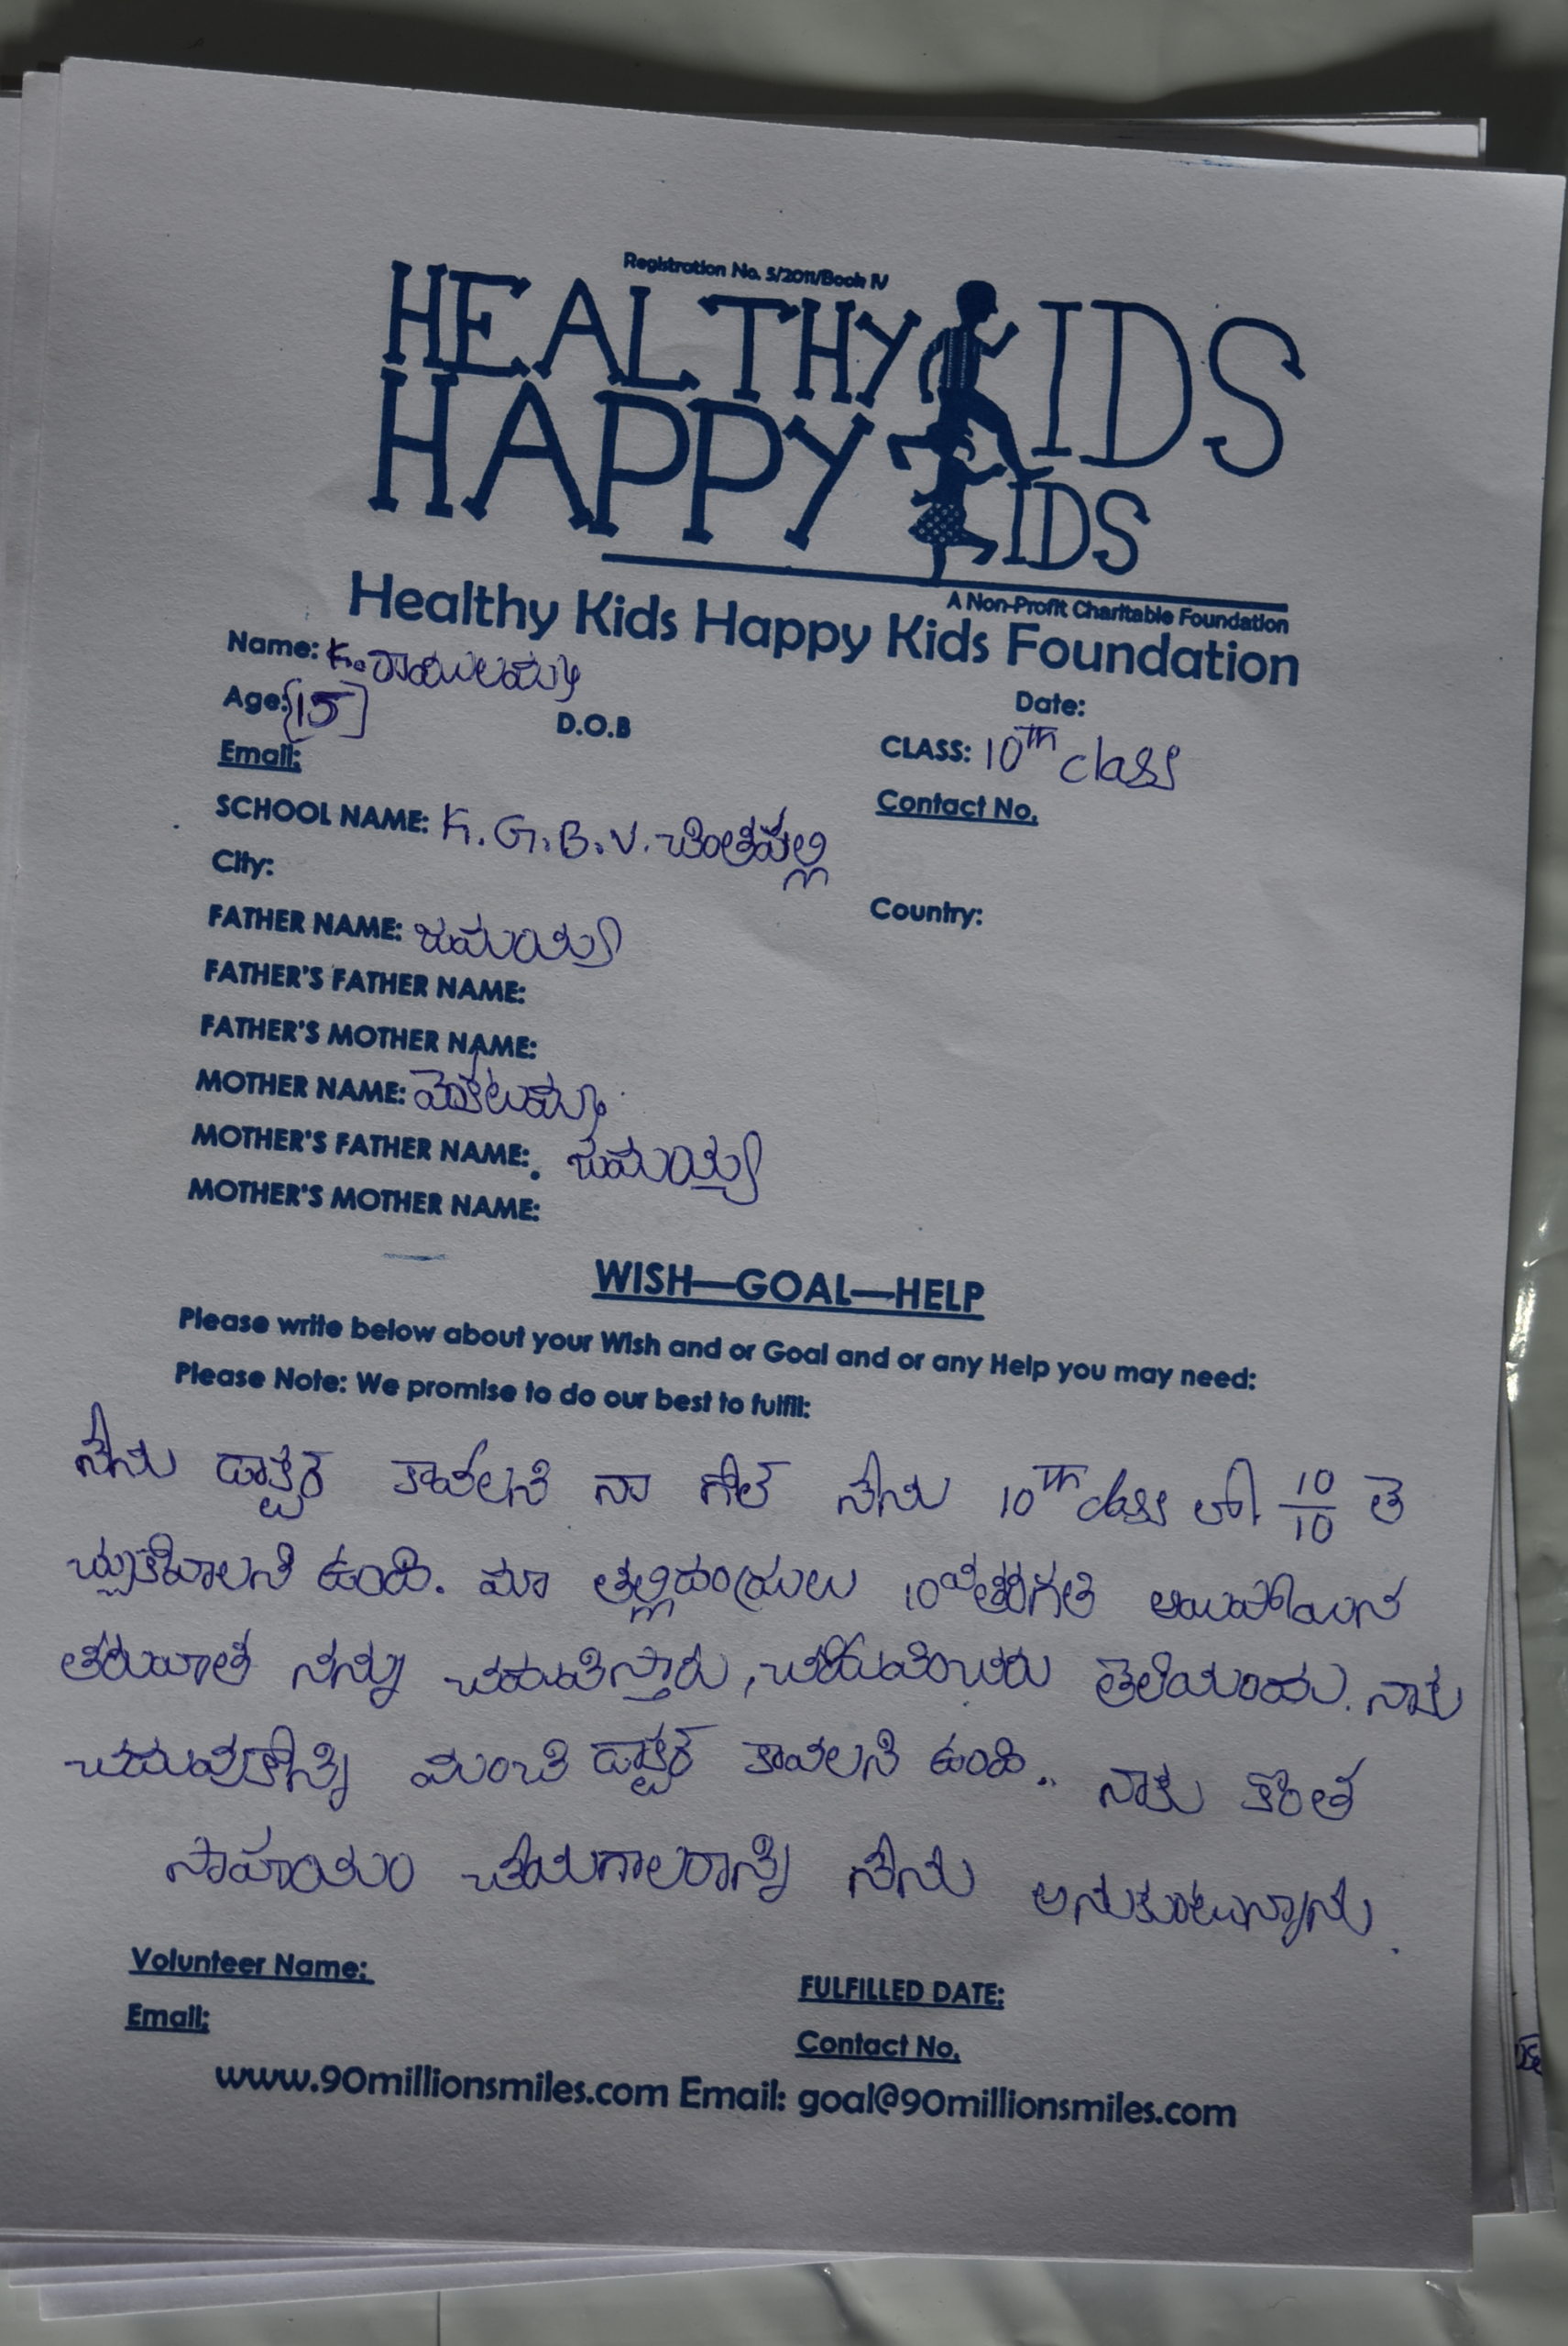 Registration No. 5/2011/Book IV
HEALTHY KIDS
HAPPY KIDS
A Non-Profit Charitable Foundation
Healthy Kids Happy Kids Foundation
Name: K. రాములమ్మ
Date:
Age: [15]
D.O.B
CLASS: 10TH class
Email:
Contact No.
SCHOOL NAME: K.G.B.V. చింతపల్లి
City:
Country:
FATHER NAME: జమయ్య
FATHER'S FATHER NAME:
FATHER'S MOTHER NAME:
MOTHER NAME:
MOTHER'S FATHER NAME: జమయ్య
MOTHER'S MOTHER NAME:
WISH—GOAL—HELP
Please write below about your Wish and or Goal and or any Help you may need:
Please Note: We promise to do our best to fulfil:
నేను డాక్టర్ కావలని నా గోల్ నేను 10TH class లో 10/10 తె
చ్చుకోవాలని ఉంది. మా తల్లిదండ్రులు 10వతరగతి అయిపోయిన
తరువాత నన్ను చదువిస్తారు, చదువించరు తెలియందు. నాకు
చదువుకొన్ని మంచి డాక్టర్ కావలని ఉంది.. నాకు కొంత
సాహయం చేయగాలరాన్ని నేను అనుకుంటున్నాను.
Volunteer Name:
FULFILLED DATE:
Email:
Contact No.
www.90millionsmiles.com Email: goal@90millionsmiles.com